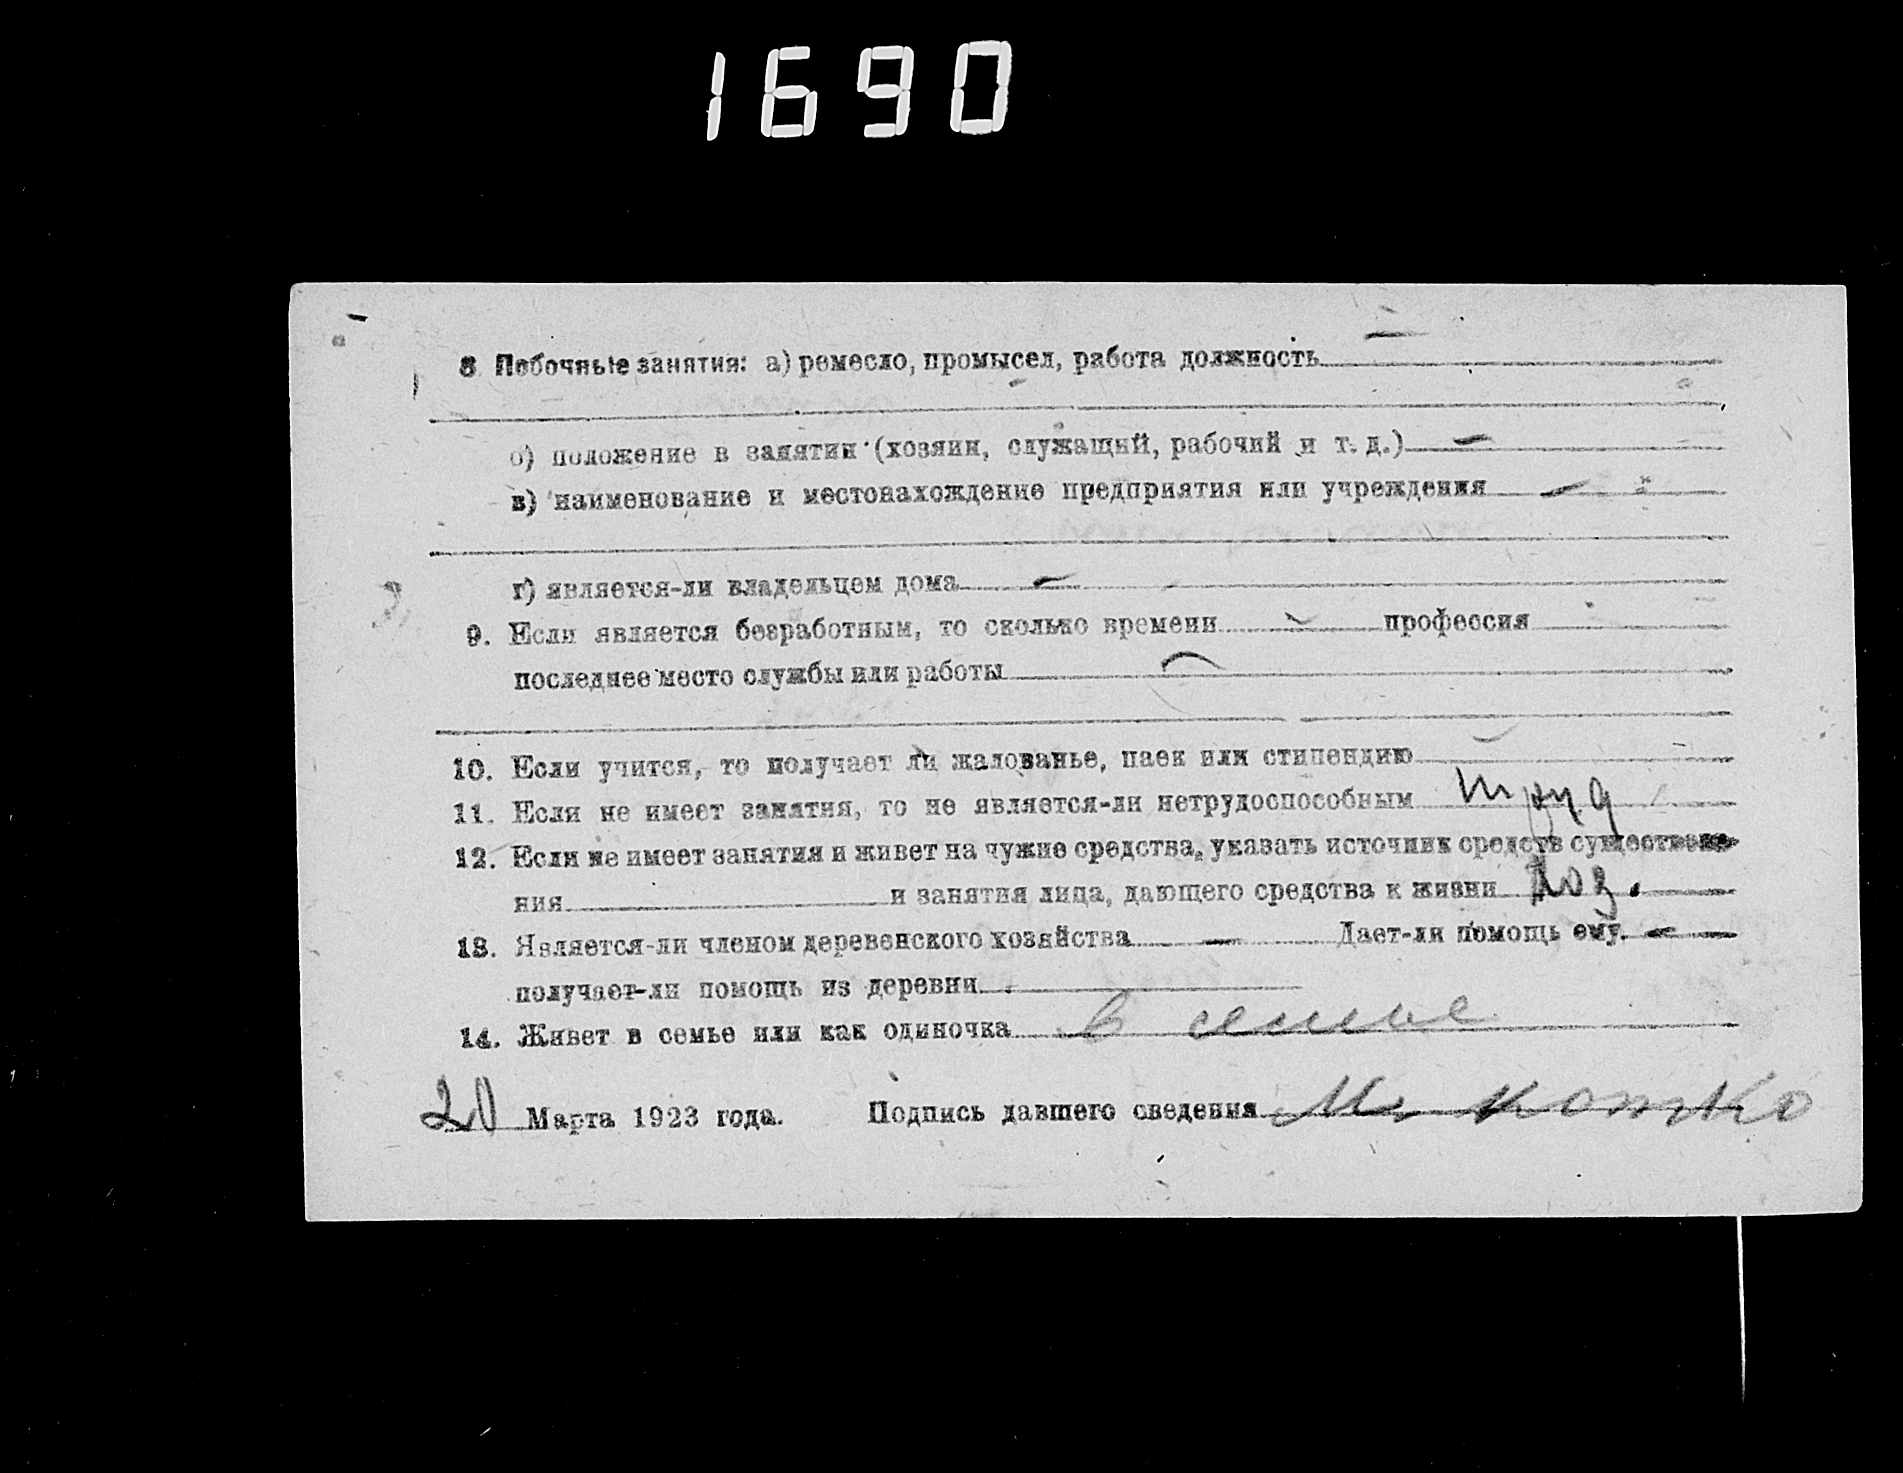 1690
8 Побочные занятия: а) ремесло, промысел, работа должность —
б) положение в занятии (хозяин, служащий, рабочий и т. д.) —
в) наименование и местонахождение предприятия или учреждения —
г) является-ли владельцем дома —
9. Если является безработным, то сколько времени — профессия
последнее место службы или работы —
10. Если учится, то получает ли жалованье, паек или стипендию
11. Если не имеет занятия, то не является-ли нетрудоспособным труд
12. Если не имеет занятия и живет на чужие средства, указать источник средств существова-
ния и занятия лица, дающего средства к жизни хоз.
13. Является-ли членом деревенского хозяйства — Дает-ли помощь ему —
получает-ли помощь из деревни
14. Живет в семье или как одиночка в семье
20 Марта 1923 года. Подпись давшего сведения